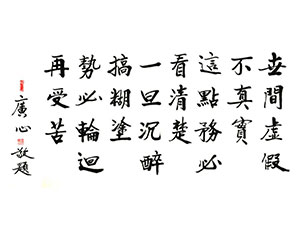 世間虛假
不真實
這點務必
看清楚
一旦沉醉
搞糊塗
勢必輪迴
再受苦
廣心敬題